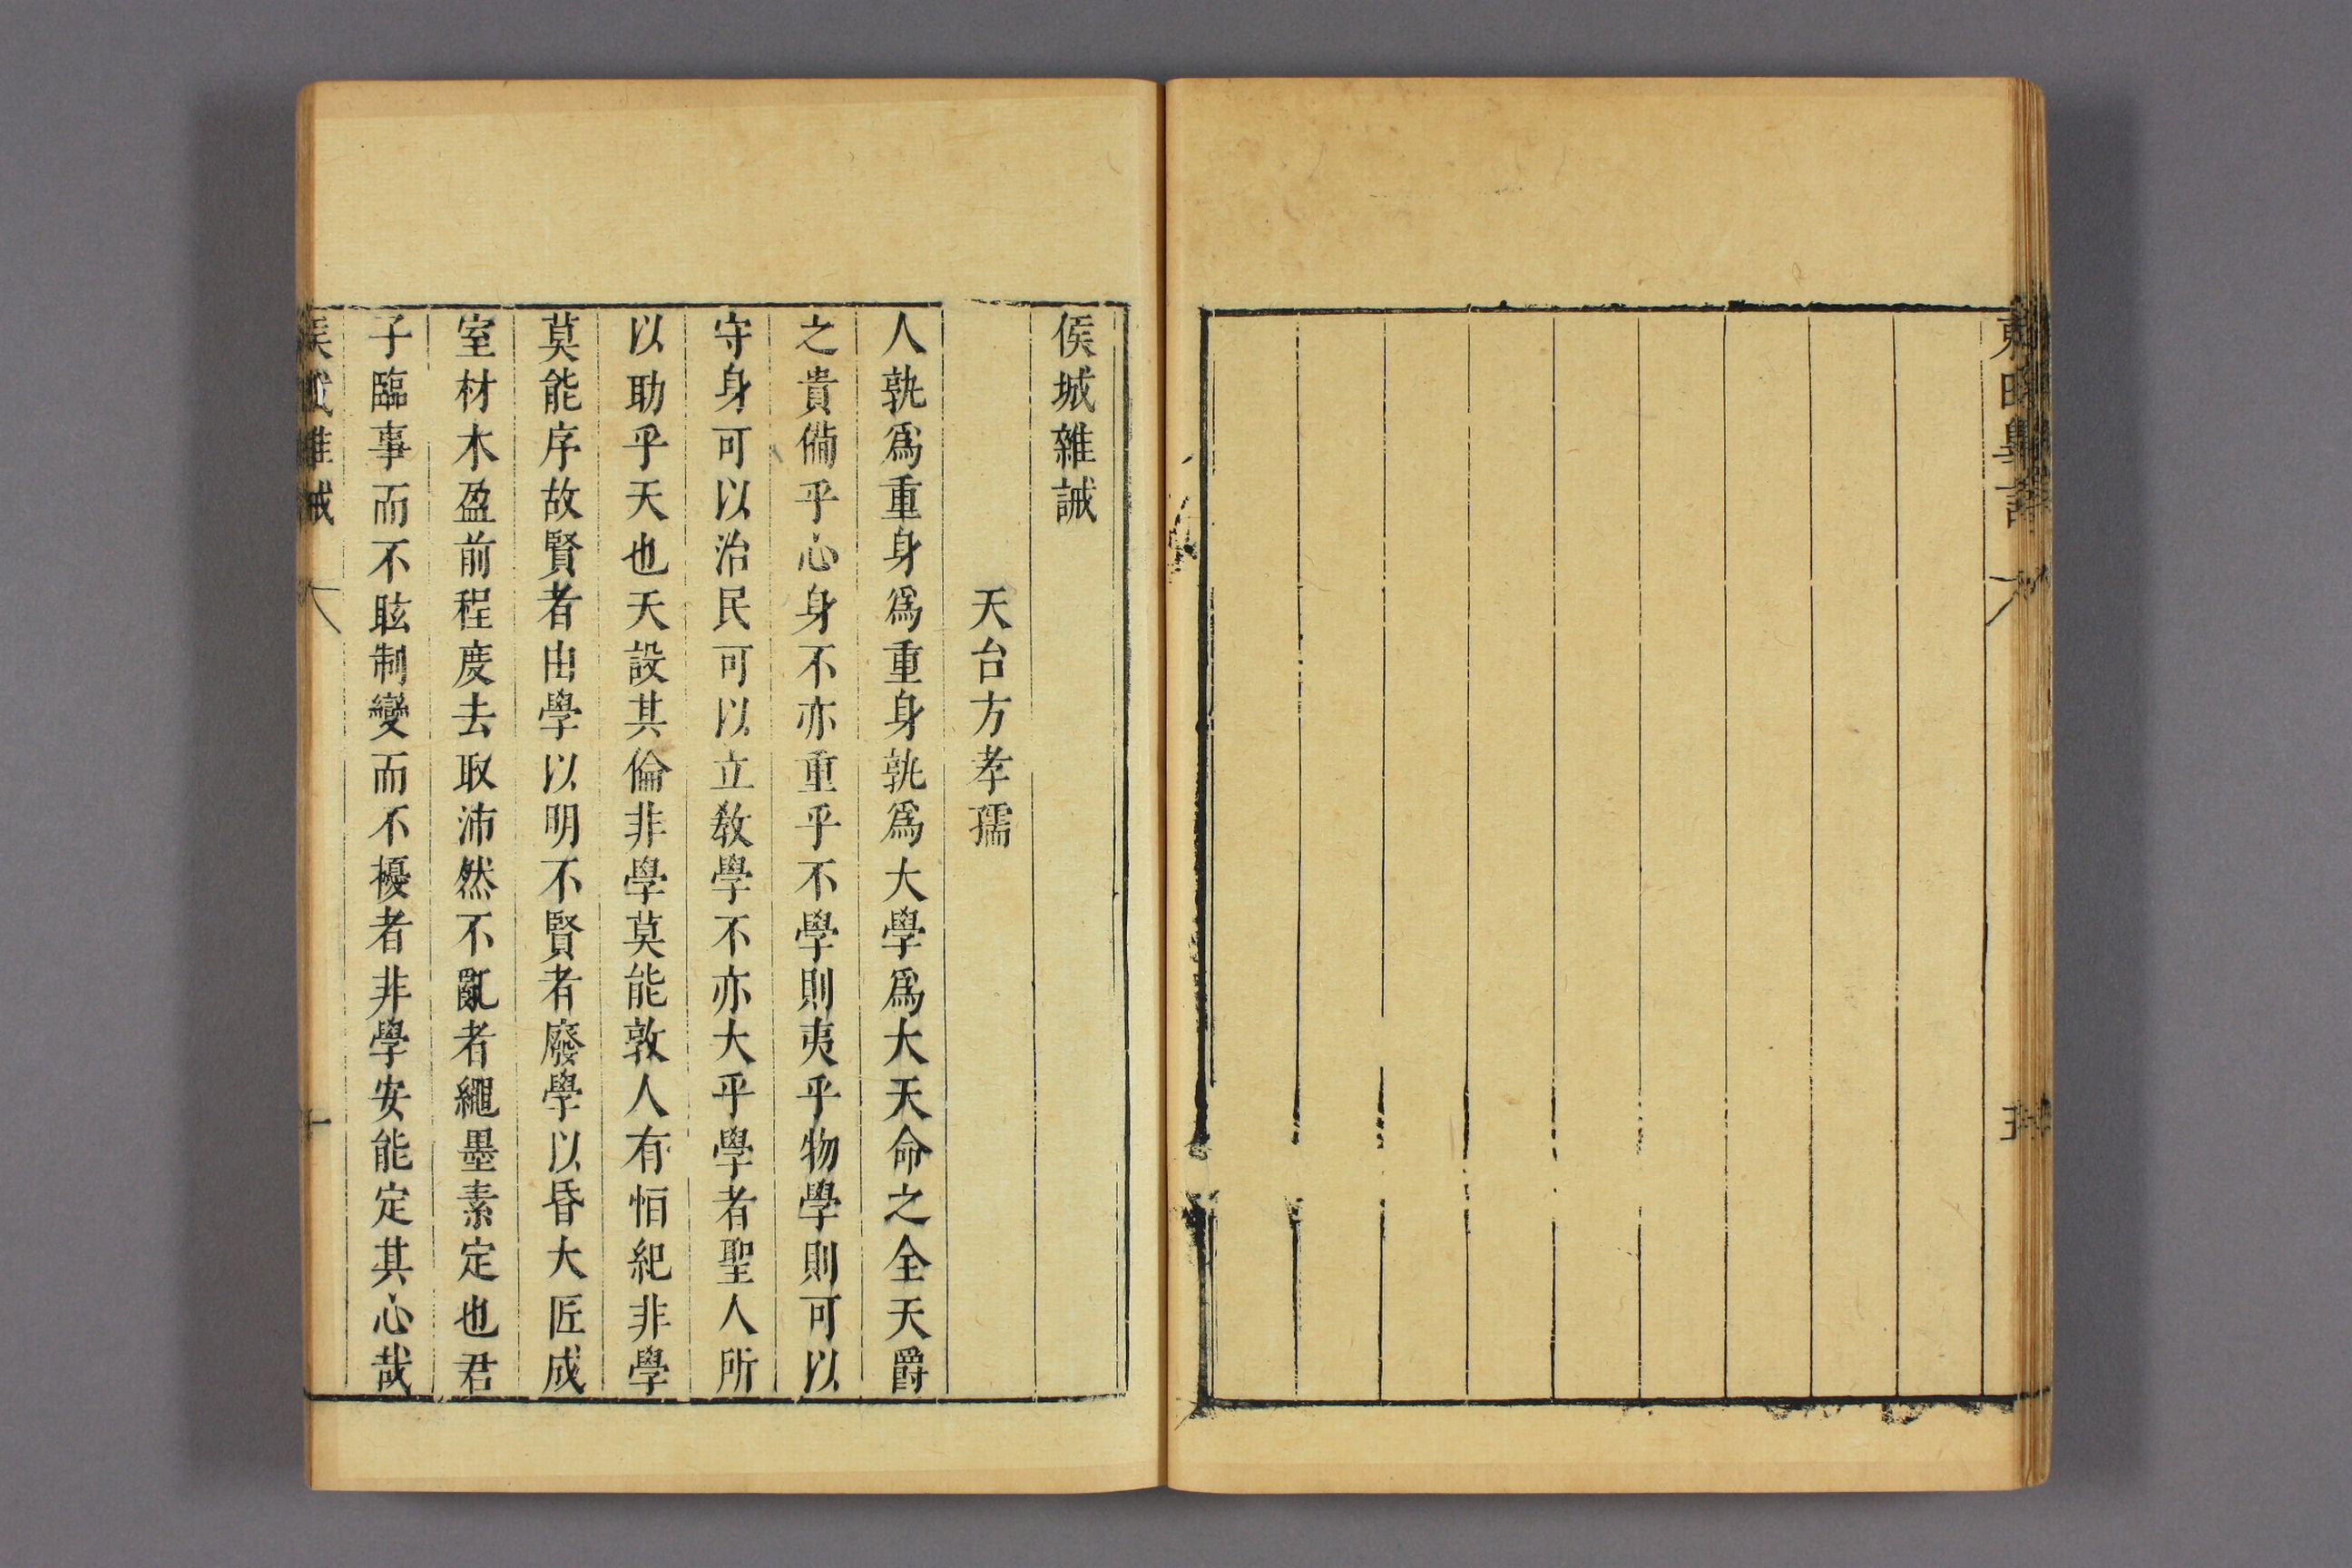 侯城雜誡
天台方孝孺
人孰爲重身爲重身孰爲大學爲大天命之全天爵
之貴備乎心身不亦重乎不學則夷乎物學則可以
守身可以治民可以立教學不亦大乎學者聖人所
以助乎天也天設其倫非學莫能敦人有恒紀非學
莫能序故賢者由學以明不賢者廢學以昏大匠成
室材木盈前程度去取沛然不亂者繩墨素定也君
子臨事而不眩制變而不擾者非學安能定其心哉
侯城雜誡